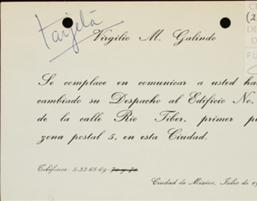 tarjeta
Virgilio M. Galindo
Se complace en comunicar a usted ha
cambiado su Despacho al Edificio No.
de la calle Río Tiber, primer p
zona postal 5, en esta Ciudad.
Teléfonos: 5-33-68-69
Ciudad de México, Julio de 19